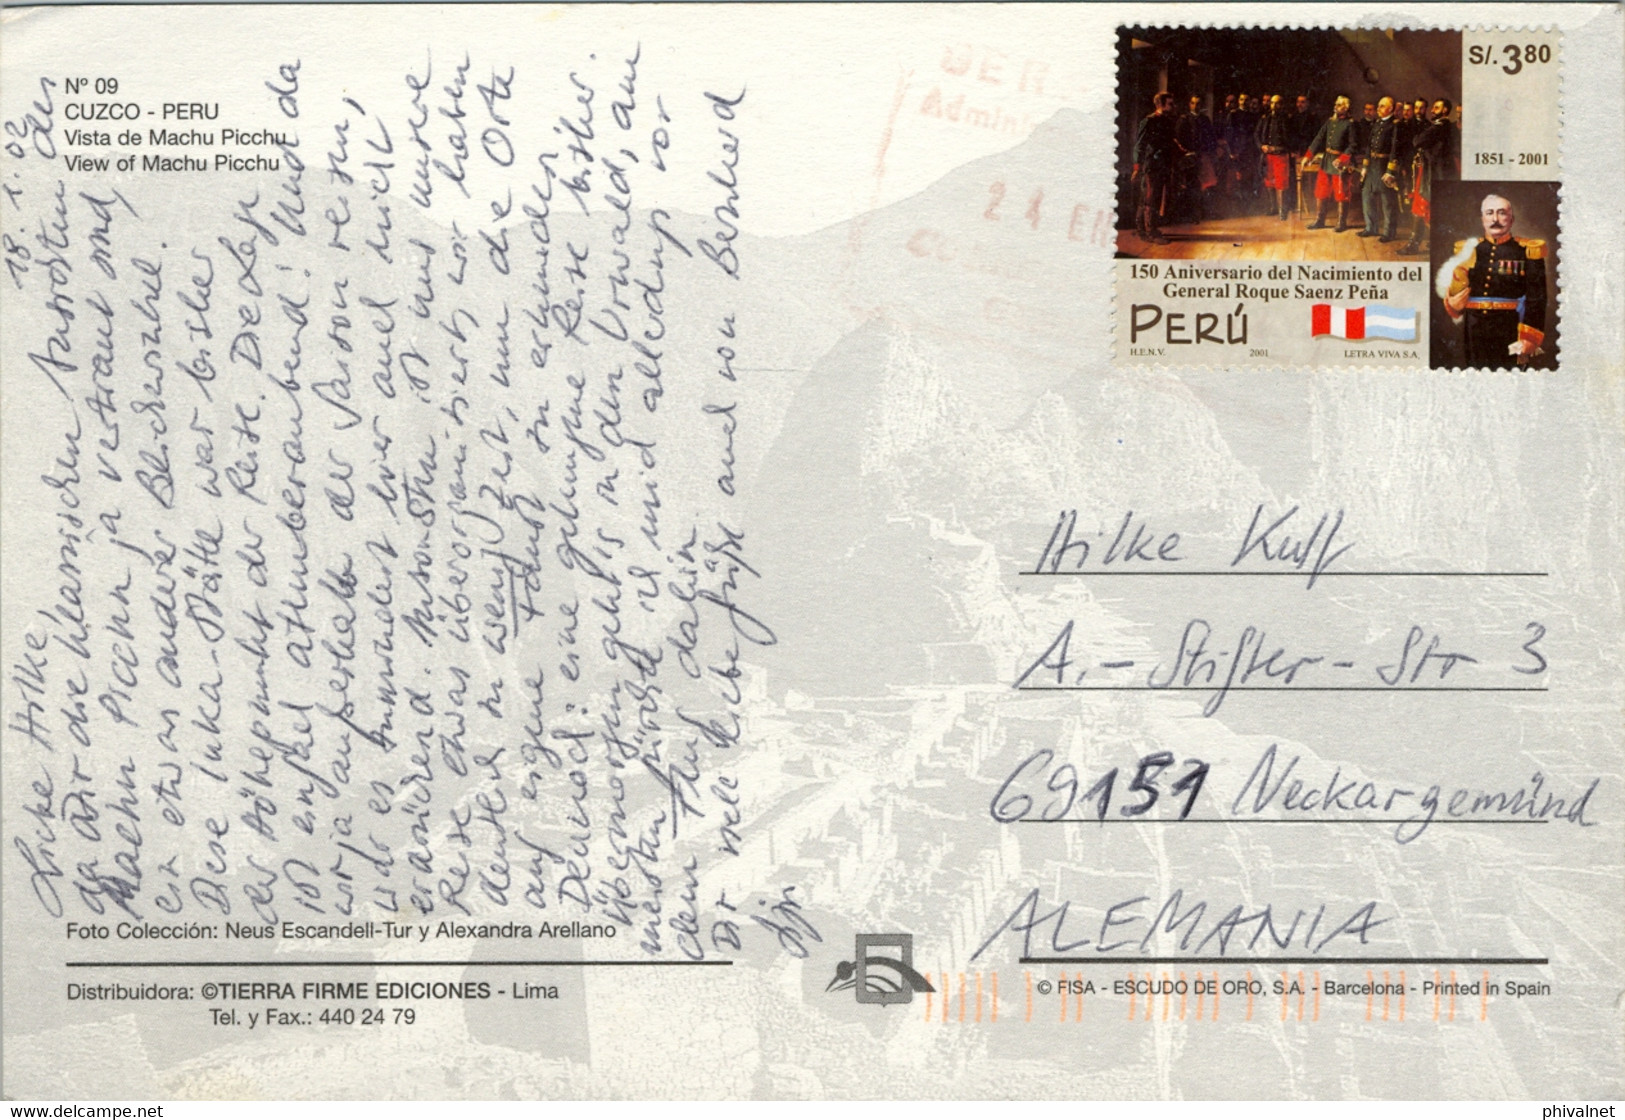 Nº 09
CUZCO - PERU
Vista de Machu Picchu
View of Machu Picchu
18. 1. 02
Liebe Hilke,
da Dir die klassischen Ansichten des
Machu Picchu ja vertraut sind,
ein etwas anderer Blickwinkel.
Diese Inka-Stätte war bisher
der Höhepunkt der Reise. Die Lage
ist einfach atemberaubend! Und da
wir ja außerhalb der Saison reisen,
war es zumindest hier auch nicht
erdrückend. Ansonsten ist uns unsere
Reise etwas überorganisiert, wir haben
deutlich zu wenig Zeit, um die Orte
auf eigene Faust zu erkunden.
Dennoch: eine gelungene Reise bisher.
Übermorgen geht's in den Urwald, am
meisten fürchte ich mich allerdings vor
dem Flug dahin.
Dir viele liebe Grüße auch von Bernherd
S/. 3.80
1851 - 2001
150 Aniversario del Nacimiento del
General Roque Saenz Peña
PERÚ
H.E.N.V. 2001 LETRA VIVA S.A.
24 EN
Hilke
A.-Stifter-Str 3
69151 Neckargemünd
ALEMANIA
Foto Colección: Neus Escandell-Tur y Alexandra Arellano
Distribuidora: ©TIERRA FIRME EDICIONES - Lima
Tel. y Fax.: 440 24 79
© FISA - ESCUDO DE ORO, S.A. - Barcelona - Printed in Spain
phivalnet